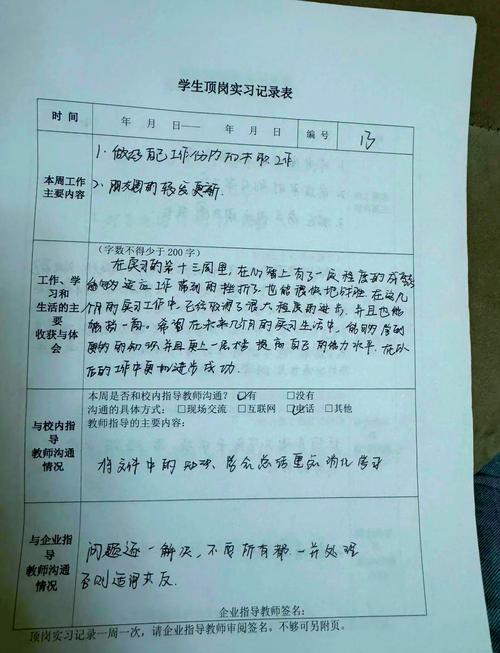 学生顶岗实习记录表
时 间 年 月 日—— 年 月 日 编 号 13
本周工作
主要内容
1、做好自己工作份内的本职工作
2、朋友圈的转发更新.
(字数不得少于 200 字)
工作、学
习和
生活的主
要
收获与体
会
在实习的第十三周里,在心智上有了一定程度的成熟
能够的 工作 遇到 挫折了也能很快地 在这几
个月的实习工作中,已经取得了很大程度的进步,并且也能
能够独 一面。希望在未来几个月的实习生活中,能够学到
更多的知识并且更上一层楼 提高自己的能力水平.在以
后的工作中更加进步成功.
与校内指
导
教师沟通
情况
本周是否和校内指导教师沟通? ☑有 □没有
沟通的具体方式: □现场交流 □互联网 ☑电话 □其他
教师指导的主要内容:
将文件中的 学会总结重点消化学习
与企业指
导
教师沟通
情况
问题逐一解决,不要所有都一并处理
否则适得其反.
企业指导教师签名:
顶岗实习记录一周一次,请企业指导教师审阅签名。不够可另附页。